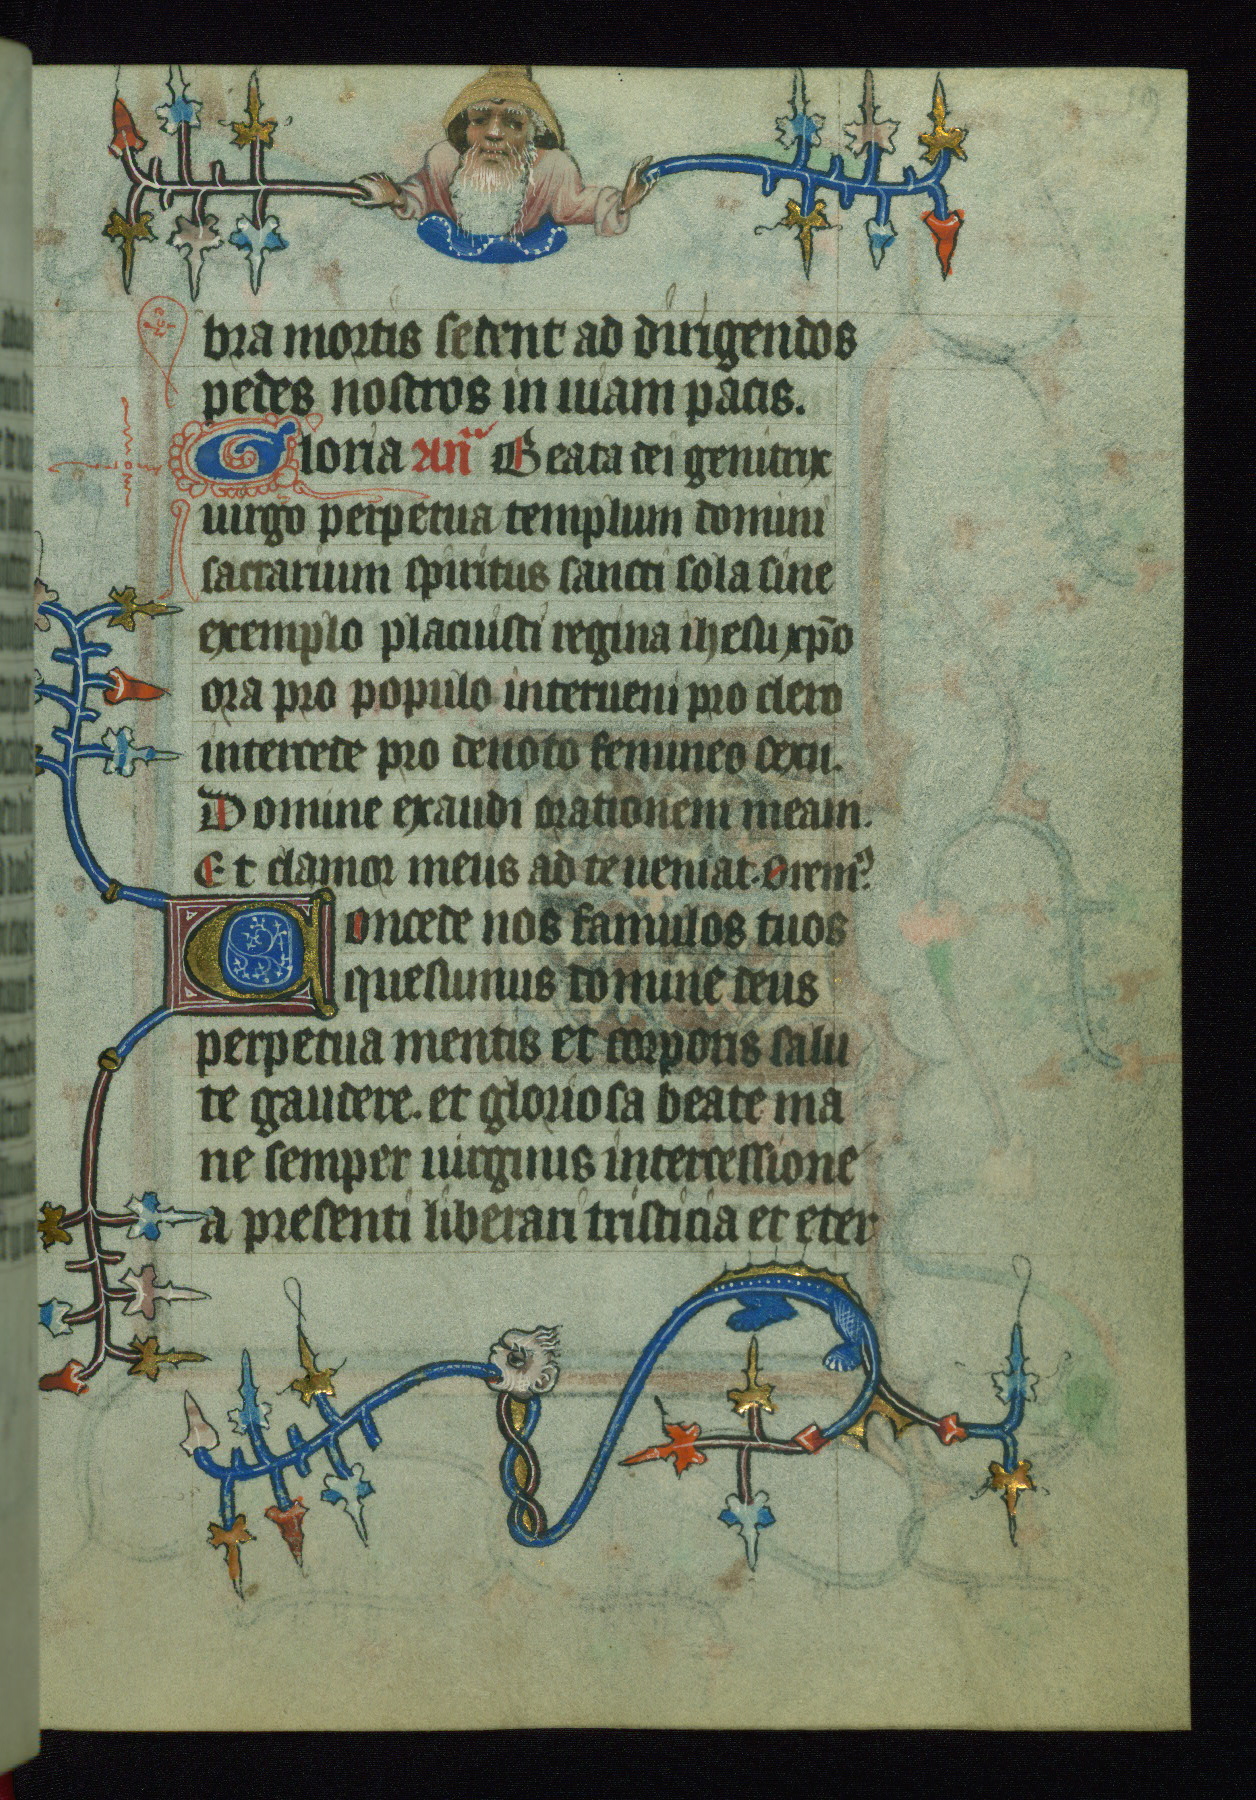 bra mortis sedent ad dirigendos
pedes nostros in uiam pacis.
Gloria an̄ Beata dei genitrix
uirgo perpetua templum domini
sacrarium spiritus sancti sola sine
exemplo placuisti regina ihesu xp̄o
ora pro populo interueni pro clero
intercede pro deuoto femineo sexu.
Domine exaudi orationem meam.
Et clamor meus ad te ueniat. Oremꝰ
Concede nos famulos tuos
quesumus domine deus
perpetua mentis et corporis salu
te gaudere. et gloriosa beate ma
rie semper uirginis intercessione
a presenti liberari tristicia et eter